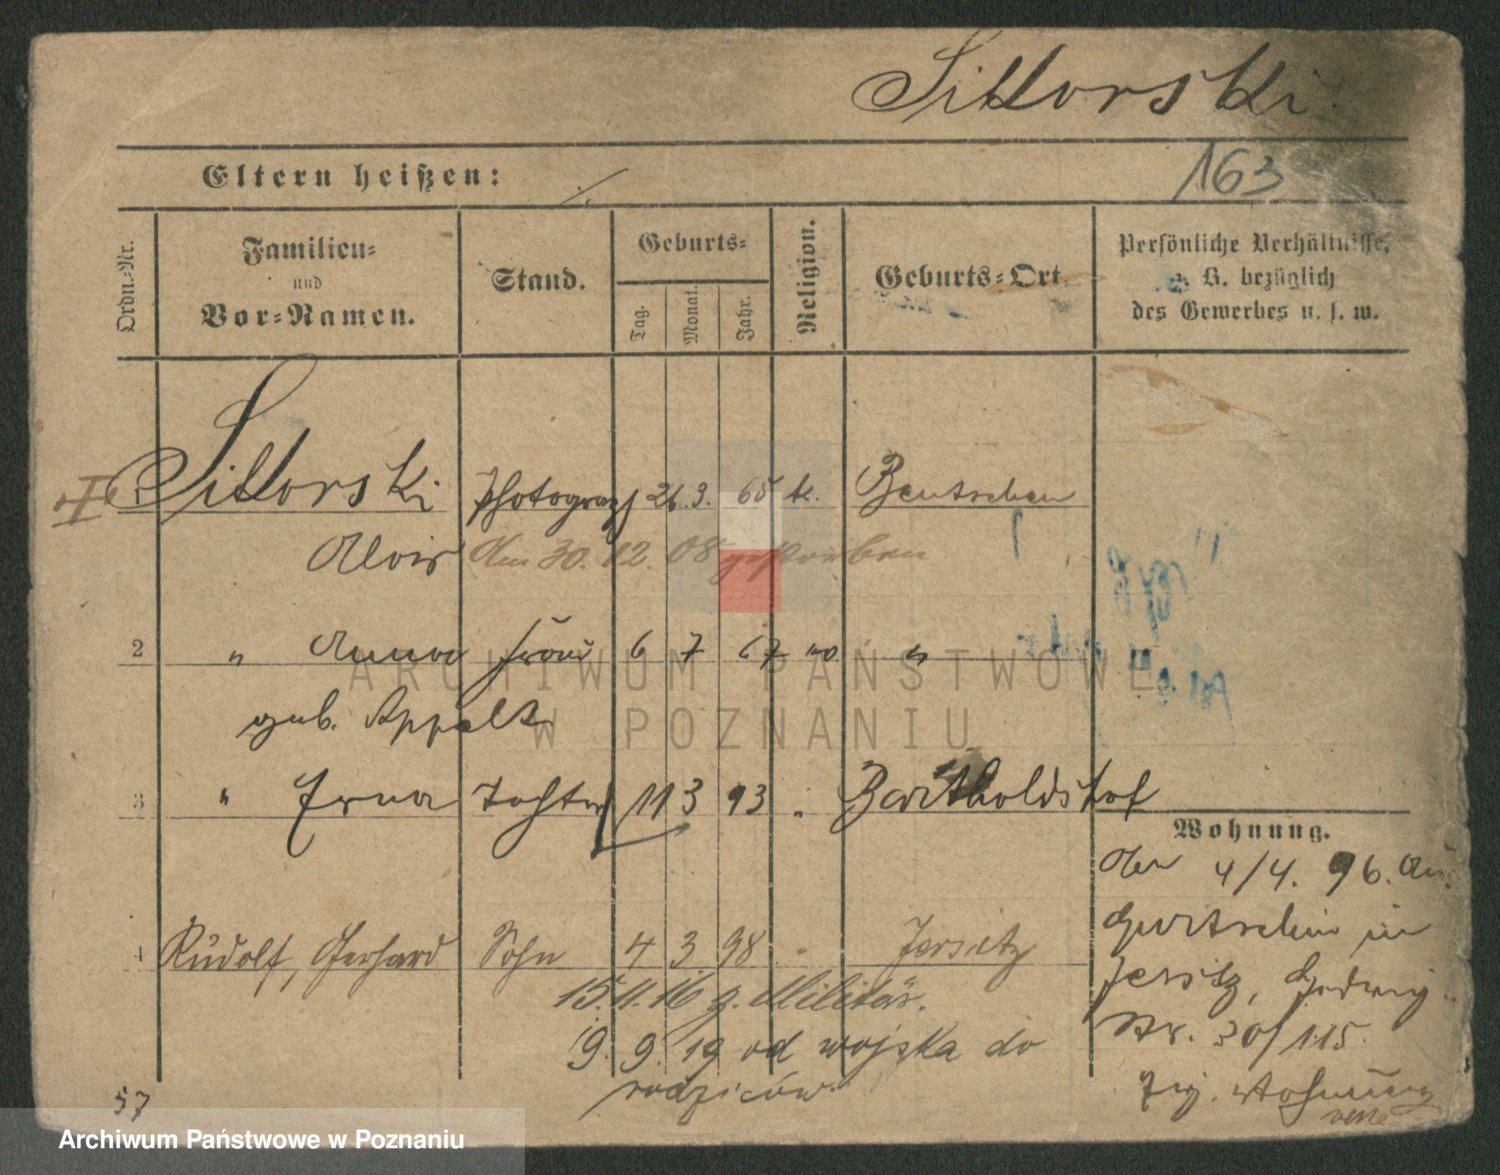 Sikorski
163
Eltern heißen: ./.
Ordn.-Nr.
Familien-
und
Vor-Namen.
Stand.
Geburts-
Tag.
Monat.
Jahr.
Religion.
Geburts-Ort.
Persönliche Verhältnisse,
z. B. bezüglich
des Gewerbes u. s. w.
I Sikorski Photograph 26. 3. 65 k. Bentschen
Alois am 30. 12. 08 gestorben
2 " Anna Frau 6 7 67 " "
geb. Appelt
3 " Erna Tochter 11 3 93 " Bartholdshof
Wohnung.
den 4/4. 96. aus
in
4 Rudolf, Gerhard Sohn 4 3 98 " Jersitz
Jersitz, Hedwig
15.11.16 z. Militär.
Nr. 30/115.
9. 9. 19 od wojska do
rodziców
Wohnung
57
ARCHIWUM PAŃSTWOWE
W POZNANIU
Archiwum Państwowe w Poznaniu